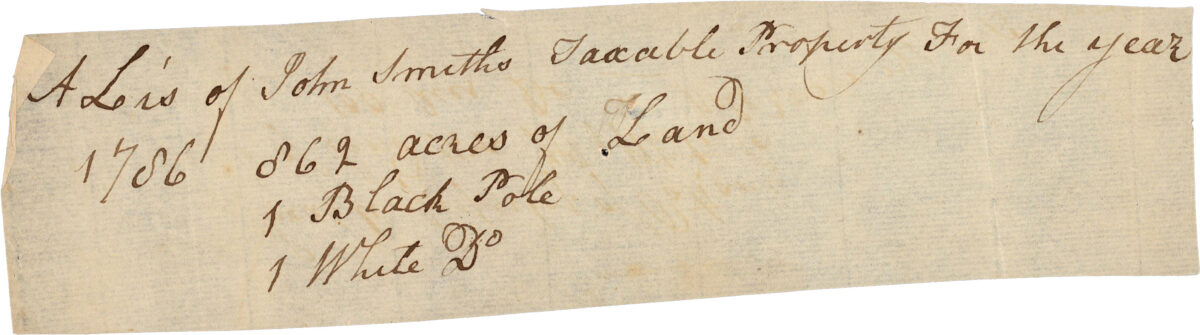 A Lis of John Smiths Taxable Property For the year
1786 862 acres of Land
1 Black Pole
1 White Do